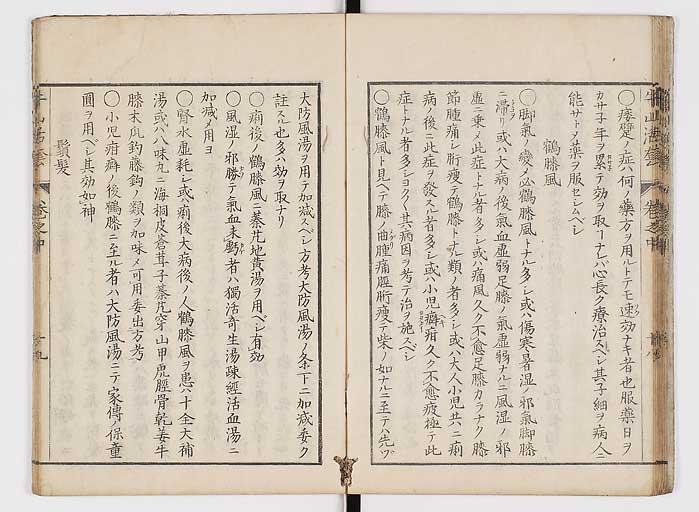 〇痿躄ノ症ハ何ノ藥方ヲ用ルトテモ速効ナキ者也服藥日ヲ
カサ子年ヲ累テ効ヲ取ーナレバ心長ク療治スベシ其子細ヲ病人ニ
能サトメ藥ヲ服セシムベシ
鶴膝風
〇脚氣ノ變メ必鶴膝風トナル多シ或ハ傷寒暑湿ノ邪氣脚膝
ニ滞リ或ハ大病ノ後氣血虚弱足膝ノ氣虚弱ナルニ風湿ノ邪
虚ニ乗メ此症トナル者多シ或ハ痛風久ク不愈足膝カラナク膝
節腫痛シ胻瘦テ鶴膝トナル類ノ者多シ或ハ大人小児共ニ痢
病ノ後ニ此症ヲ發スル者多シ或ハ小児癖疳久ク不愈疲極テ此
症トナル者多シヨクく其病因ヲ考テ治ヲ施スベシ
〇鶴膝風ト見ヘテ膝ノ曲腫痛脛胻瘦テ柴ノ如ナルニ至テハ先ヅ
大防風湯ヲ用テ加減スベシ方考大防風湯ノ条下ニ加減委ク
註スル也多ハ効ヲ取ナリ
〇痢後ノ鶴膝風ニ蓁芃地黄湯ヲ用ベシ有効
〇風湿ノ邪勝テ氣血未虧者ハ獨活寄生湯疎經活血湯ニ
加減メ用ヨ
〇腎水虚耗シ或ハ痢後大病後ノ人鶴膝風ヲ患ハ十全大補
湯或ハ八味丸ニ海桐皮蒼茸子蓁芃穿山甲虎脛骨乾姜牛
膝木瓜釣藤鈎ノ類ヲ加味メ可用委出方考
〇小児疳癖ノ後鶴膝ニ至ル者ハ大防風湯ニテ家傳ノ保童
圓ヲ用ベシ其効如神
鬚髪